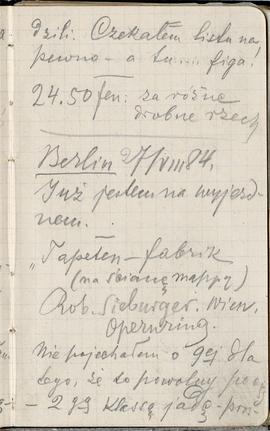 dzili. Czekałem listu na
pewno – a tu.... figa!
24.50 fen: za różne
drobne rzeczy
Berlin 27/VIII 84.
Już jestem na wyjezd-
nem.
"Tapeten – fabrik
(na ścianę mappy)
Rob. Sieburger. Wien.
Opernring.
Nie pojechałem o 9ej dla
tego, że to powolny
– 2gą klassą jadę –